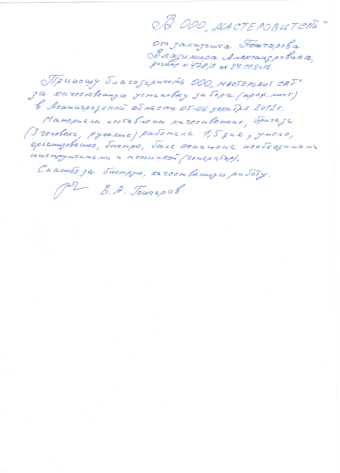 В ООО „МАСТЕРОВИТ СПБ"
от заказчика Гончарова
Владимира Александровича,
договор от 24.11.2012.
Приношу благодарность ООО „МАСТЕРОВИТ СПБ"
за качественную установку забора (проф. лист)
в Ленинградской области 05-06 декабря 2012 г.
Материалы поставлены качественные, бригада
(3 человека, русские) работала 1,5 дня, умело,
организованно, быстро, была оснащена необходимыми
инструментами и техникой (генератор).
Спасибо за быструю, качественную работу.
В.А. Гончаров